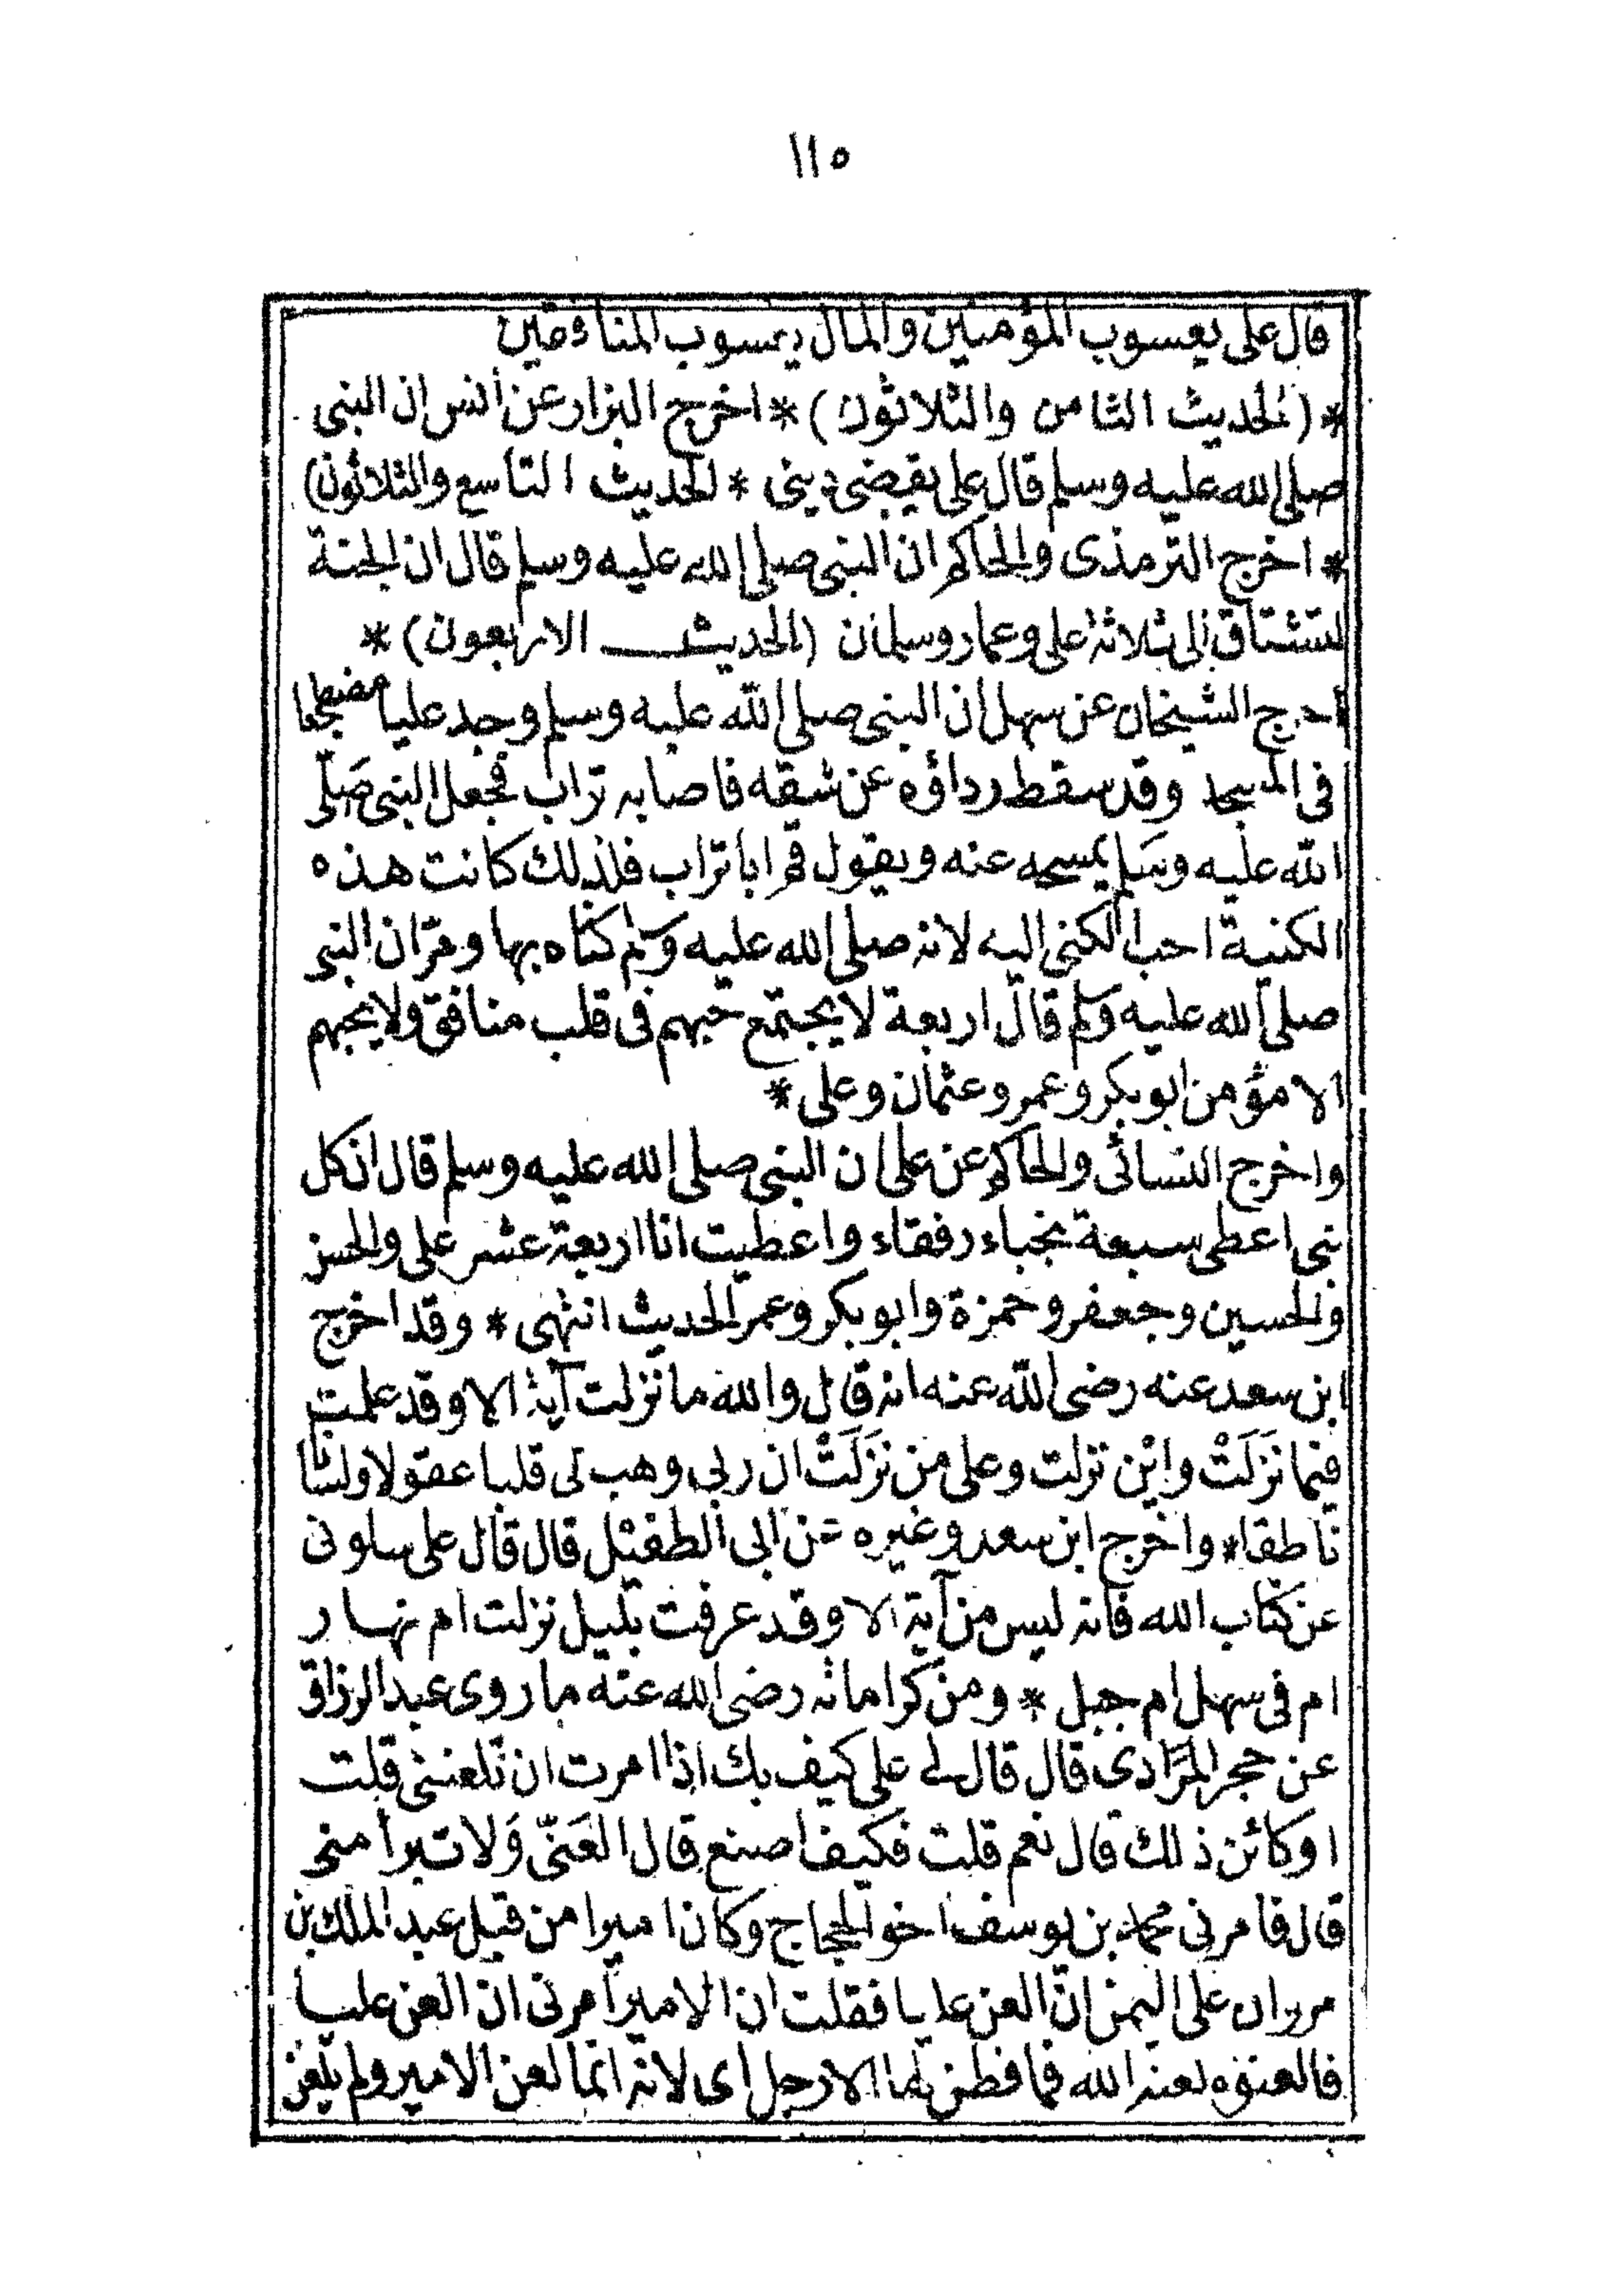 ١١٥
قال على يعسوب المؤمنين والمال يعسوب المنافقين
* (الحديث الثامن والثلاثون) * اخرج البزار عن أنس ان النبى
صلى الله عليه وسلم قال على يقضى دينى * الحديث التاسع والثلاثون)
* اخرج الترمذى والحاكم ان النبى صلى الله عليه وسلم قال ان الجنة
لتشتاق الى ثلاثة على وعمار وسلمان (الحديث الاربعون) *
اخرج الشيخان عن سهل ان النبى صلى الله عليه وسلم وجد عليا مضطجعا
فى المسجد وقد سقط رداؤه عن شقه فاصابه تراب فجعل النبى صَلّى
الله عليه وسَلم يمسحه عنه ويقول قم ابا تراب فلذلك كانت هذه
الكنية احب الكنى اليه لانه صلى الله عليه وسلم كناه بها ومرّ ان النبى
صلى الله عليه وسلم قال اربعة لا يجتمع حبهم فى قلب منافق ولا يحبهم
الا مؤمن ابو بكر وعمر وعثمان وعلى *
واخرج النسائى والحاكم عن على ان النبى صلى الله عليه وسلم قال ان كل
نبى اعطى سبعة نجباء رفقاء واعطيت انا اربعة عشر على والحسن
والحسين وجعفر وحمزة وابو بكر وعمر الحديث انتهى * وقد اخرج
ابن سعد عنه رضى الله عنه انه قال والله ما نزلت آية الا وقد علمت
فيما نَزَلَتْ واين نزلت وعلى من نَزَلَتْ ان ربى وهب لى قلبا عقولا ولسانا
ناطقا * واخرج ابن سعد وغيره عن ابى الطفيل قال قال على سلونى
عن كتاب الله فانه ليس من آية الا وقد عرفت بليل نزلت ام نهار
ام فى سهل ام جبل * ومن كراماته رضى الله عنه ما روى عبد الرزاق
عن حجر المرادى قال قال لى على كيف بك اذا امرت ان تلعننى قلت
او كائن ذلك قال نعم قلت فكيف اصنع قال العَنّى وَلا تبرأ منى
قال فامرنى محمد بن يوسف اخو الحجاج وكان اميرا من قبل عبد الملك بن
مروان على اليمن ان العن عليا فقلت ان الامير امرنى ان العن عليا
فالعنوه لعنه الله فما فطن لها الا رجل اى لانه انما لعن الامير ولم يلعن